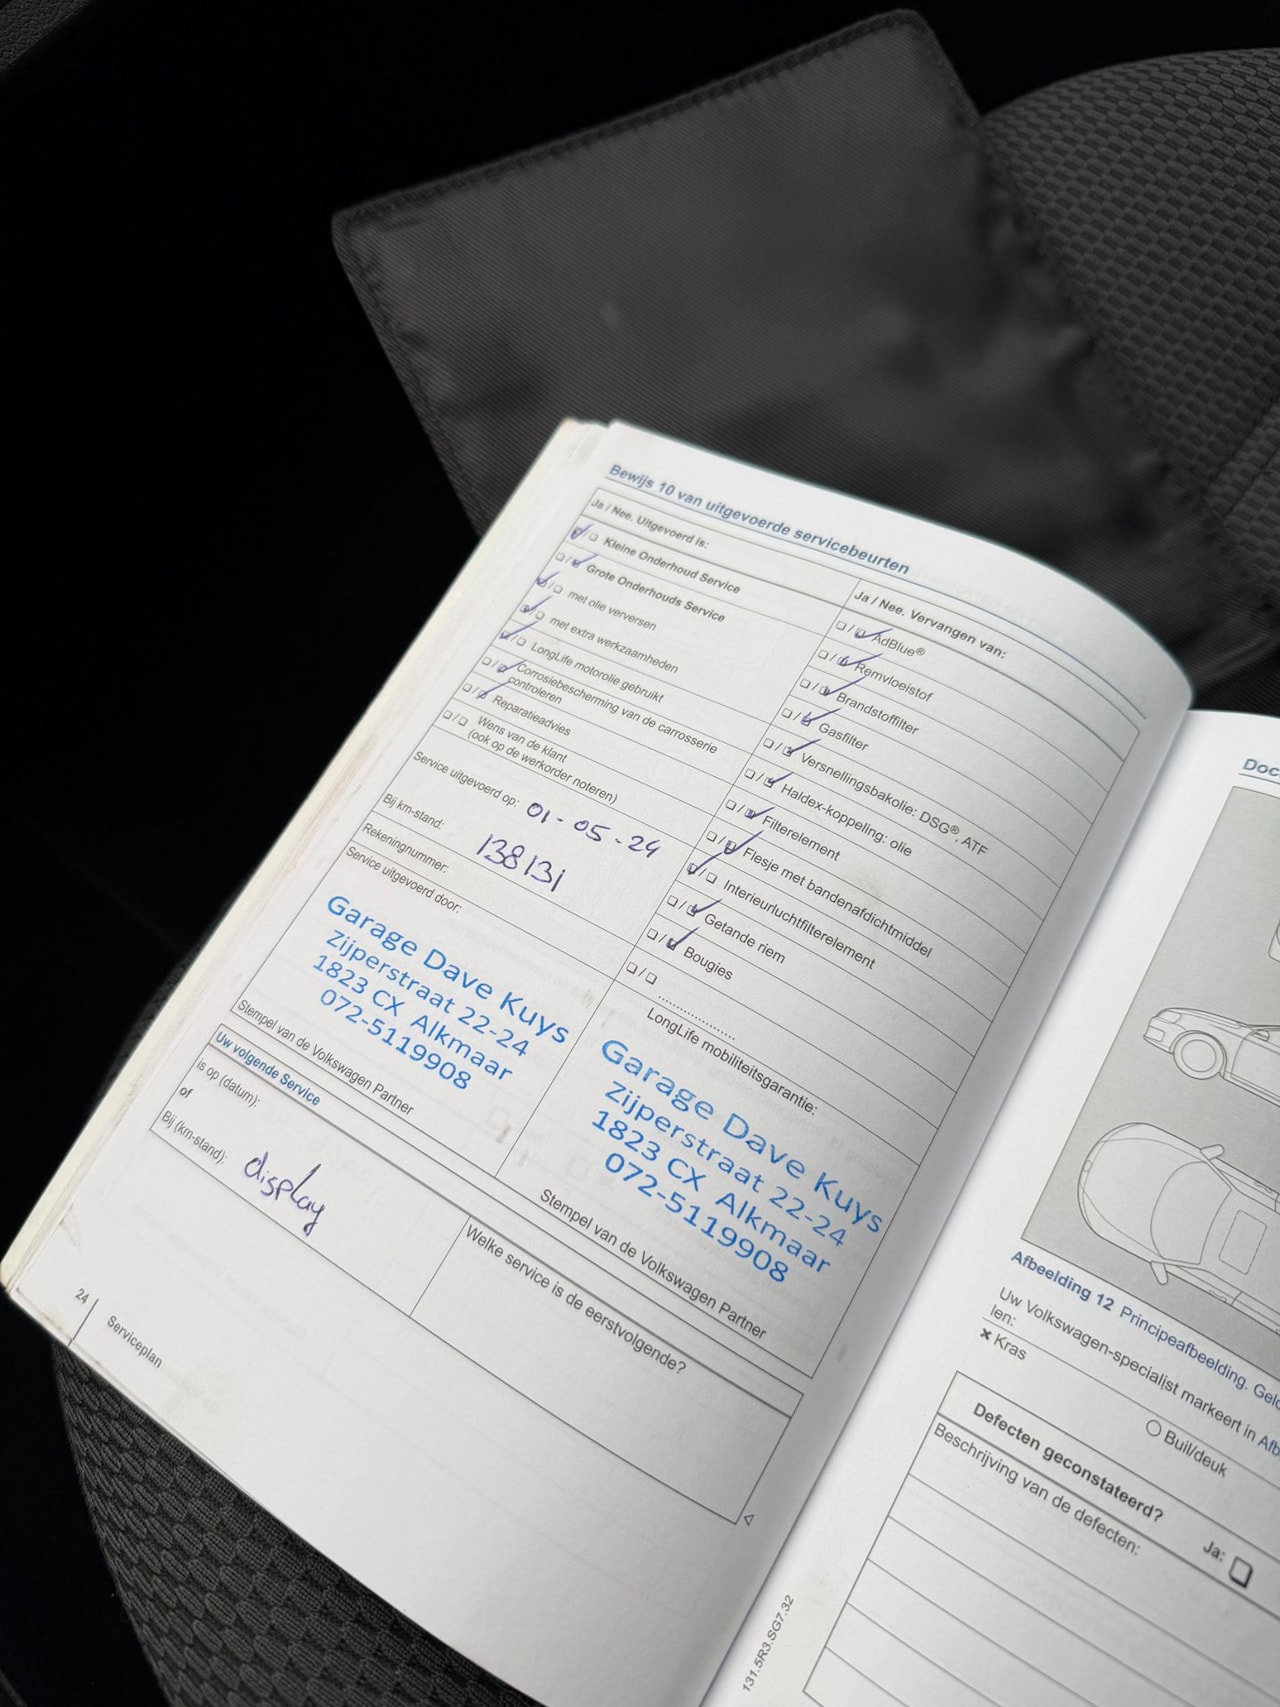 Bewijs 10 van uitgevoerde servicebeurten
Ja / Nee. Uitgevoerd is:
Kleine Onderhoud Service
Grote Onderhouds Service
met olie verversen
met extra werkzaamheden
LongLife motorolie gebruikt
Corrosiebescherming van de carrosserie
controleren
Reparatieadvies
Wens van de klant
(ook op de werkorder noteren)
Service uitgevoerd op: 01-05-24
Bij km-stand: 138131
Rekeningnummer:
Service uitgevoerd door:
Garage Dave Kuys
Zijperstraat 22-24
1823 CX Alkmaar
072-5119908
Stempel van de Volkswagen Partner
Ja / Nee. Vervangen van:
AdBlue®
Remvloeistof
Brandstoffilter
Gasfilter
Versnellingsbakolie: DSG®, ATF
Haldex-koppeling: olie
Filterelement
Flesje met bandenafdichtmiddel
Interieurluchtfilterelement
Getande riem
Bougies
....................
LongLife mobiliteitsgarantie:
Garage Dave Kuys
Zijperstraat 22-24
1823 CX Alkmaar
072-5119908
Stempel van de Volkswagen Partner
Uw volgende Service
is op (datum):
of
Bij (km-stand): display
Welke service is de eerstvolgende?
24
Serviceplan
Doc
Afbeelding 12 Principeafbeelding. Geld
Uw Volkswagen-specialist markeert in Afb
len:
× Kras
Buil/deuk
Defecten geconstateerd?
Ja:
Beschrijving van de defecten:
131.5R3.SG7.32